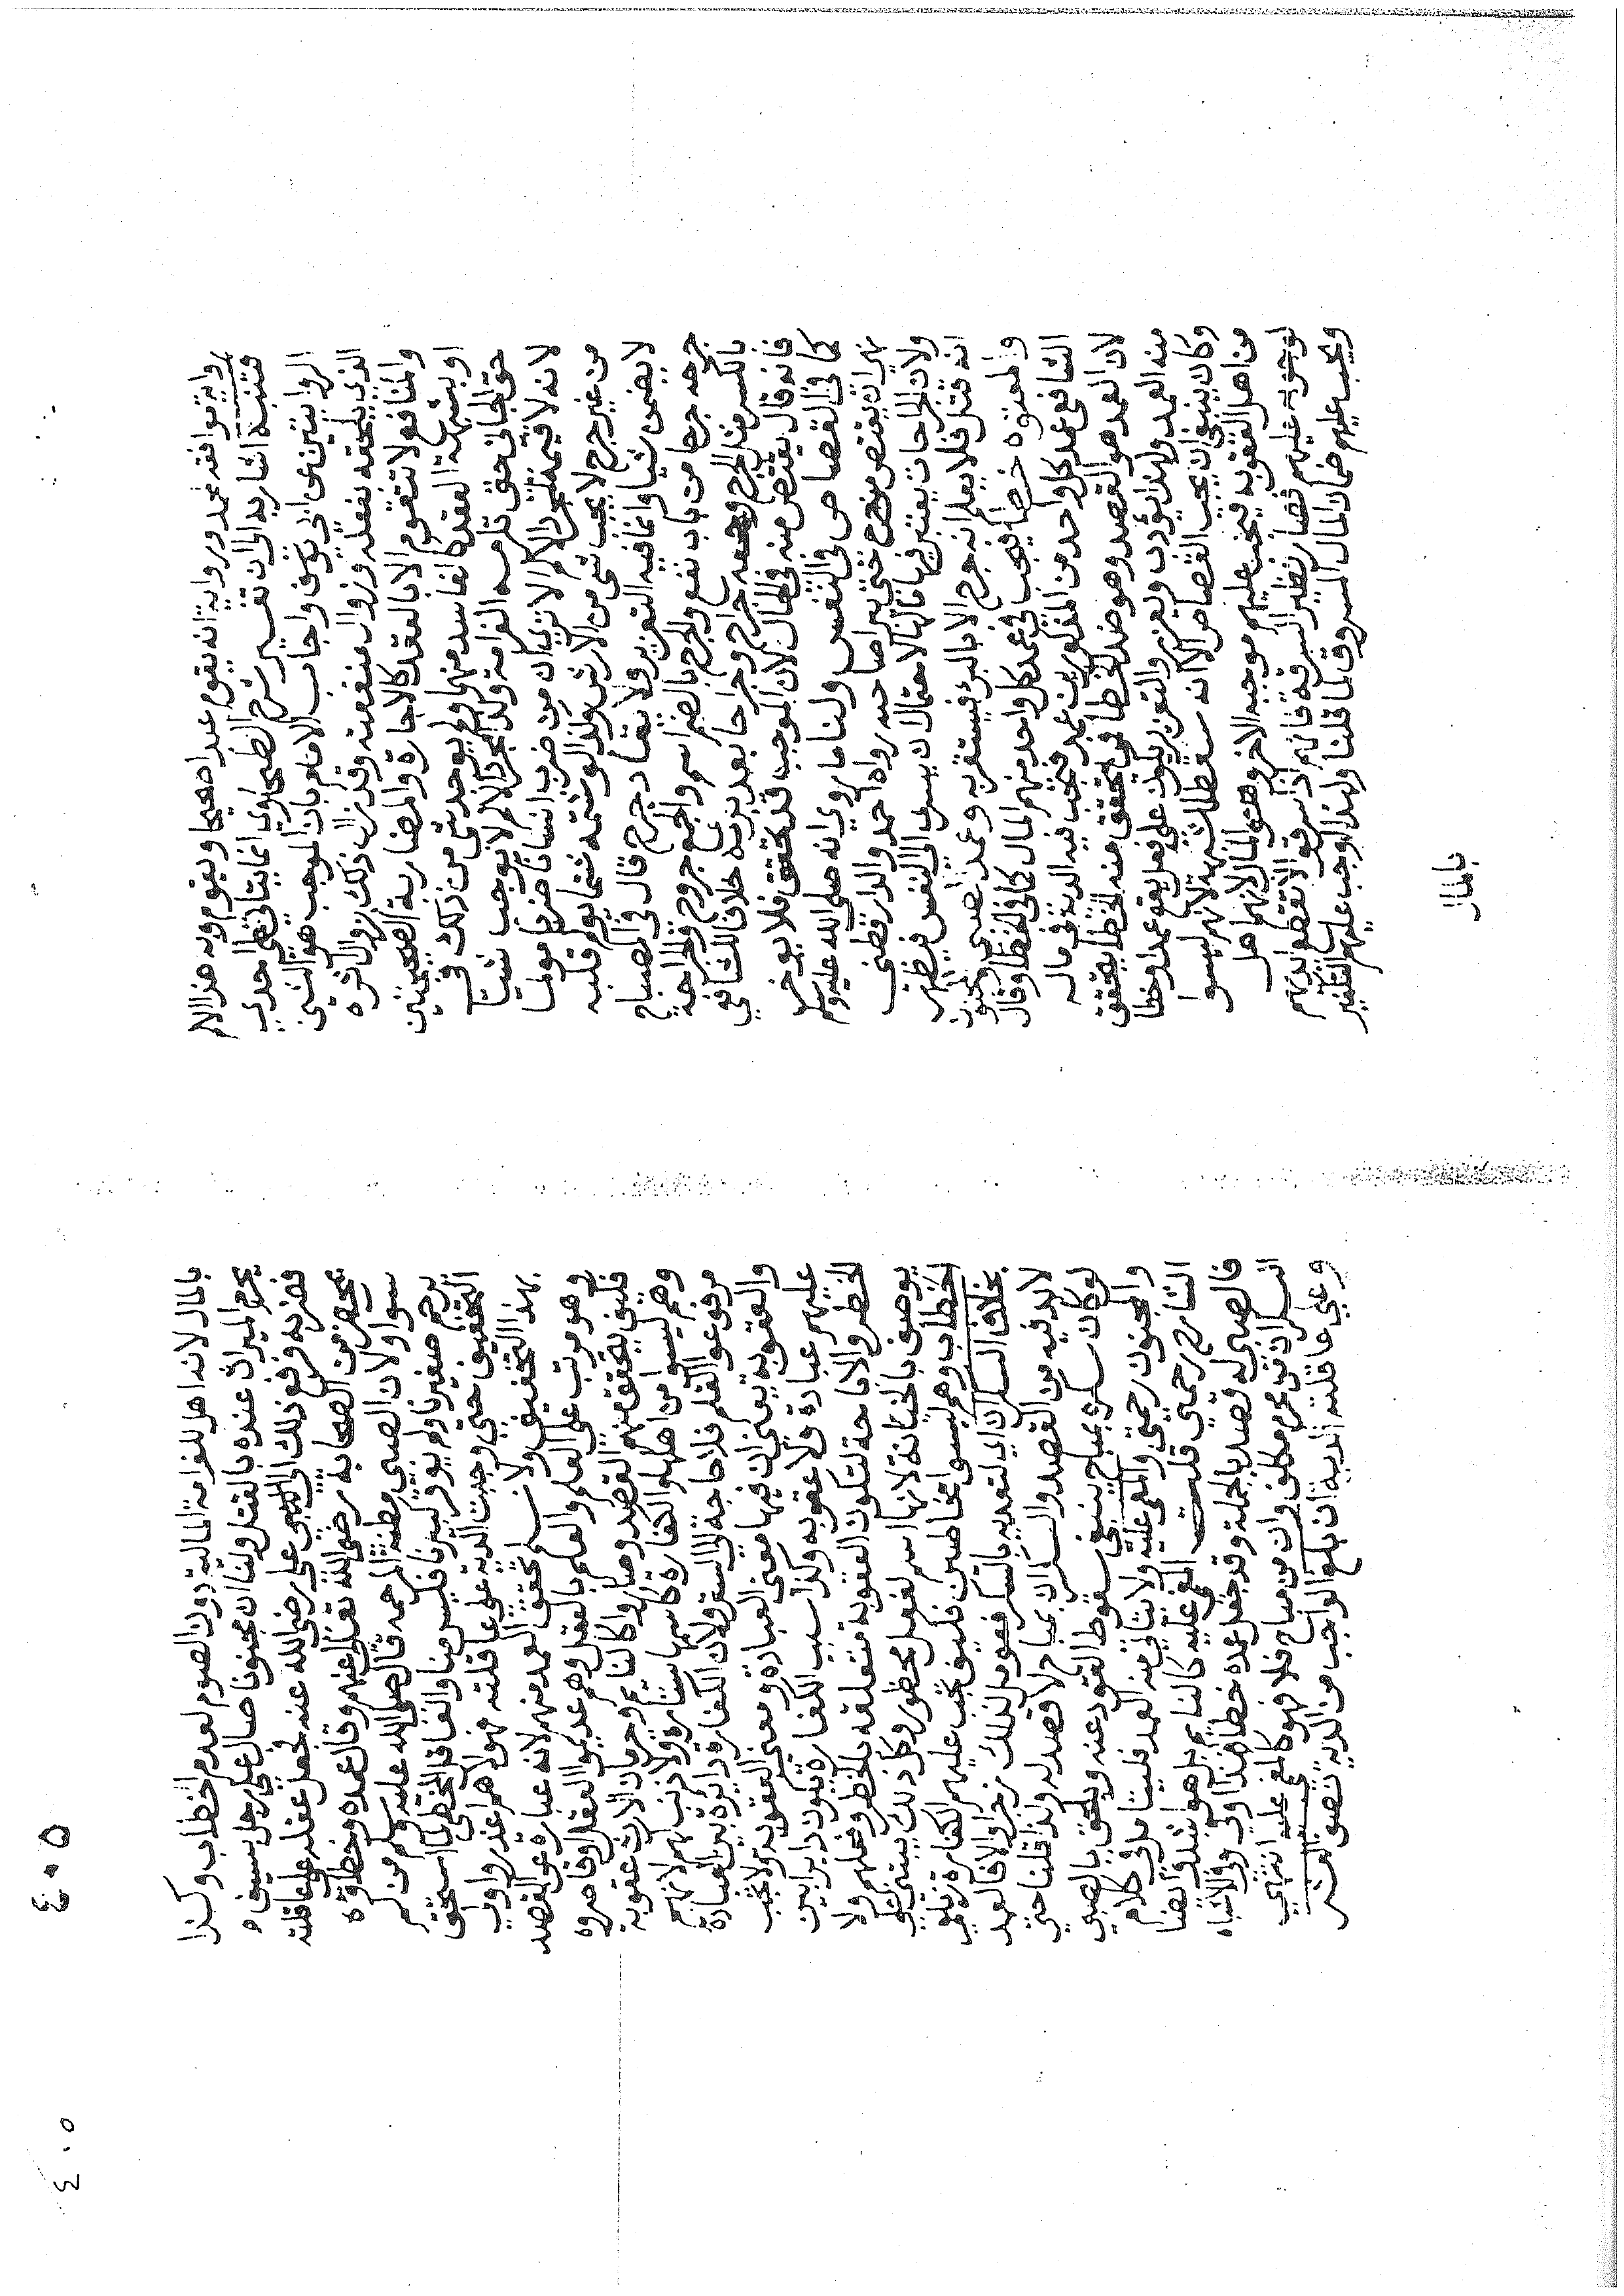 رواية توافقه محمد ورواية انه يقوم عبدا صحيحا ويقوم وبه هذا الالم
فتنبه اشار بد الى ان تفسير شرح الطحاوي انما يتاتى على احدى
الروايتين عن ابي يوسف واجاب الامام بان الموجب هو الشين
الذي يلحقه بفعله وزوال منفعته وقد زال ذلك بزوال اثره
والمنافع لا تتقوم الا بالعقد كالاجارة والمضاربة الصحيحتين
او بشبهة العقد كالفاسد منهما ولم يوجد شي من ذلك في
حق الجاني حتى تلزمه الغرامة وكذا مجرد الالم لا يوجب شيئا
لانه لا قيمة لمجرد الالم الا ترى ان من ضرب انسانا ضربا مولما
من غير جرح لا يجب شي من الارش وكذا لو شتمه شتما يولم قلبه
لا يضمن شيا وانما فيه التعزير ولا يقاد جرح قال في المصباح
جرحه جرحا من باب نفع والجرح بالضم اسم والجمع جروح والجراحة
بالكسر مثل الجرح وجمعه جراح وجراحا بعد برئه خلافا للشافعي
فانه قال يقتص منه في الحال لان الموجب قد تحقق فلا يوخر
كما في القصاص في النفس ولنا ما روي انه صلى الله عليه وسلم
نهى ان يقتص من جرح حتى يبرا صاحبه رواه احمد والدارقطني
ولان الجراحات يعتبر فيها مالها لاحتمال ان يسري الى النفس فيظهر
انه قتل فلا يعلم انه جرح الا بالبرء فيستقر به وعمد الصبي والمجنون
والمعتوه خطأ فيجب في عمد كل واحد منهم المال كما في الخطا وقال
الشافعي عمد كل واحد من المذكورين عمد فتجب فيه الدية في ماله
لان العمد هو القصد وهو ضد الخطا فمن تحقق منه الخطا يتحقق
منه العمد ولهذا يؤدب ويعزر والتعزير يكون على فعل يقع عمدا لا خطا
وكان ينبغي ان يجب القصاص الا انه سقط للشبهة لانهم ليسوا
من اهل العقوبة فيجب عليهم موجبه الاخر وهو المال لانهم اهل
لوجوبه عليهم فصار نظير السرقة فانهم اذا سرقوا لا تقطع ايديهم
ويجب عليهم ضمان المال المسروق لما قلنا ولهذا وجب عليهم التكفير
بالمال
بالمال لانه اهل للغرامة المالية دون الصوم لعدم الخطاب وكذا
يحرم الميراث عنده بالقتل ولنا ان مجنونا صال على رجل بسيف
فضربه فرفع ذلك الى علي رضي الله عنه فجعل عقله على عاقلته
بمحضر من الصحابة رضي الله تعالى عنهم وقال عمده وخطاؤه
سوا ولان الصبي مظنة المرحمة قال صلى الله عليه وسلم من لم
يرحم صغيرنا ولم يوقر كبيرنا فليس منا والعاقل المخطي لما استحق
التخفيف حتى وجبت الدية على عاقلته فهولاهم اعذر واولى
بهذا التخفيف ولا نسلم تحقق العمد منهم لانه عبارة عن القصد
وهو مرتب على العلم والعلم بالعقل وهم عديموا العقل او قاصروه
فكيف يتحقق منهم القصد وصاروا كالنايم وحرمان الارث عقوبة
وهم ليسوا من اهلها والكفارة كاسمها ستارة ولا ذنب لهم لانهم
مرفوعوا القلم فلا حاجة الى الستر ولان الكفارة دايرة بين العبادة
والعقوبة يعني ان فيها معنى العبادة ومعنى العقوبة ولا تجب
عليهم عبادة ولا عقوبة وكذا سبب الكفارة يكون دايرا بين
الحظر والاباحة لتكون العقوبة متعلقه بالحظر وفعلهم ولا
يوصف بالجناية لانها اسم لفعل محظور وكل ذلك يبتنى على
الخطاب وهم ليسوا بمخاطبين فكيف تجب عليهم الكفارة زيلعي
بخلاف السكران اي لتعديه بالسكر فعومل بذلك زجرا والا فالعمد
لابد فيه من القصد والسكران بمباح لا قصد له ولذا قلنا حتى
لو كان سكره بمباح ينبغي سقوط القود عنه ويلحق بالصبي
والمجنون رحمتي والمغمى عليه ولا يتاتى منه العمد فليتامل في كلام
الشارح رحمتي قلت المغمى عليه كالنايم بل هو اشد وايضا
فالصبي له قصد بالجملة وقد جعل عمده خطا فهذا اولى وفي الاشباه
السكران من محرم مكلف وان من مباح فلا فهو كالمغمى عليه انتهى
وعلى عاقلته الدية ان بلغ الواجب من الدية نصف العشر
٤٠٥
٤٠٥